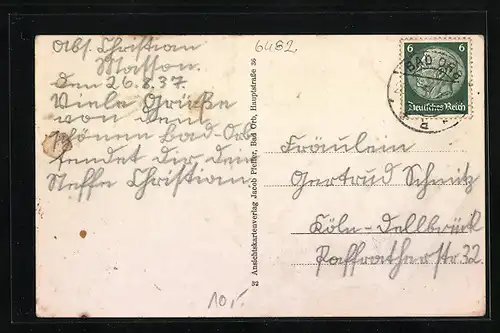 Abs. Christian
Masson.
Den 26.8.37.
Viele Grüße
von dem
schönem Bad-Orb
sendet dir dein
Neffe Christian.
6482
6 6
BAD ORB
Deutsches Reich
Fräulein
Gertrud Schmitz
Köln-Dellbrück
Paffratherstr 32.
32 Ansichtskartenverlag Jacob Pfeffer, Bad Orb, Hauptstraße 36
10,-